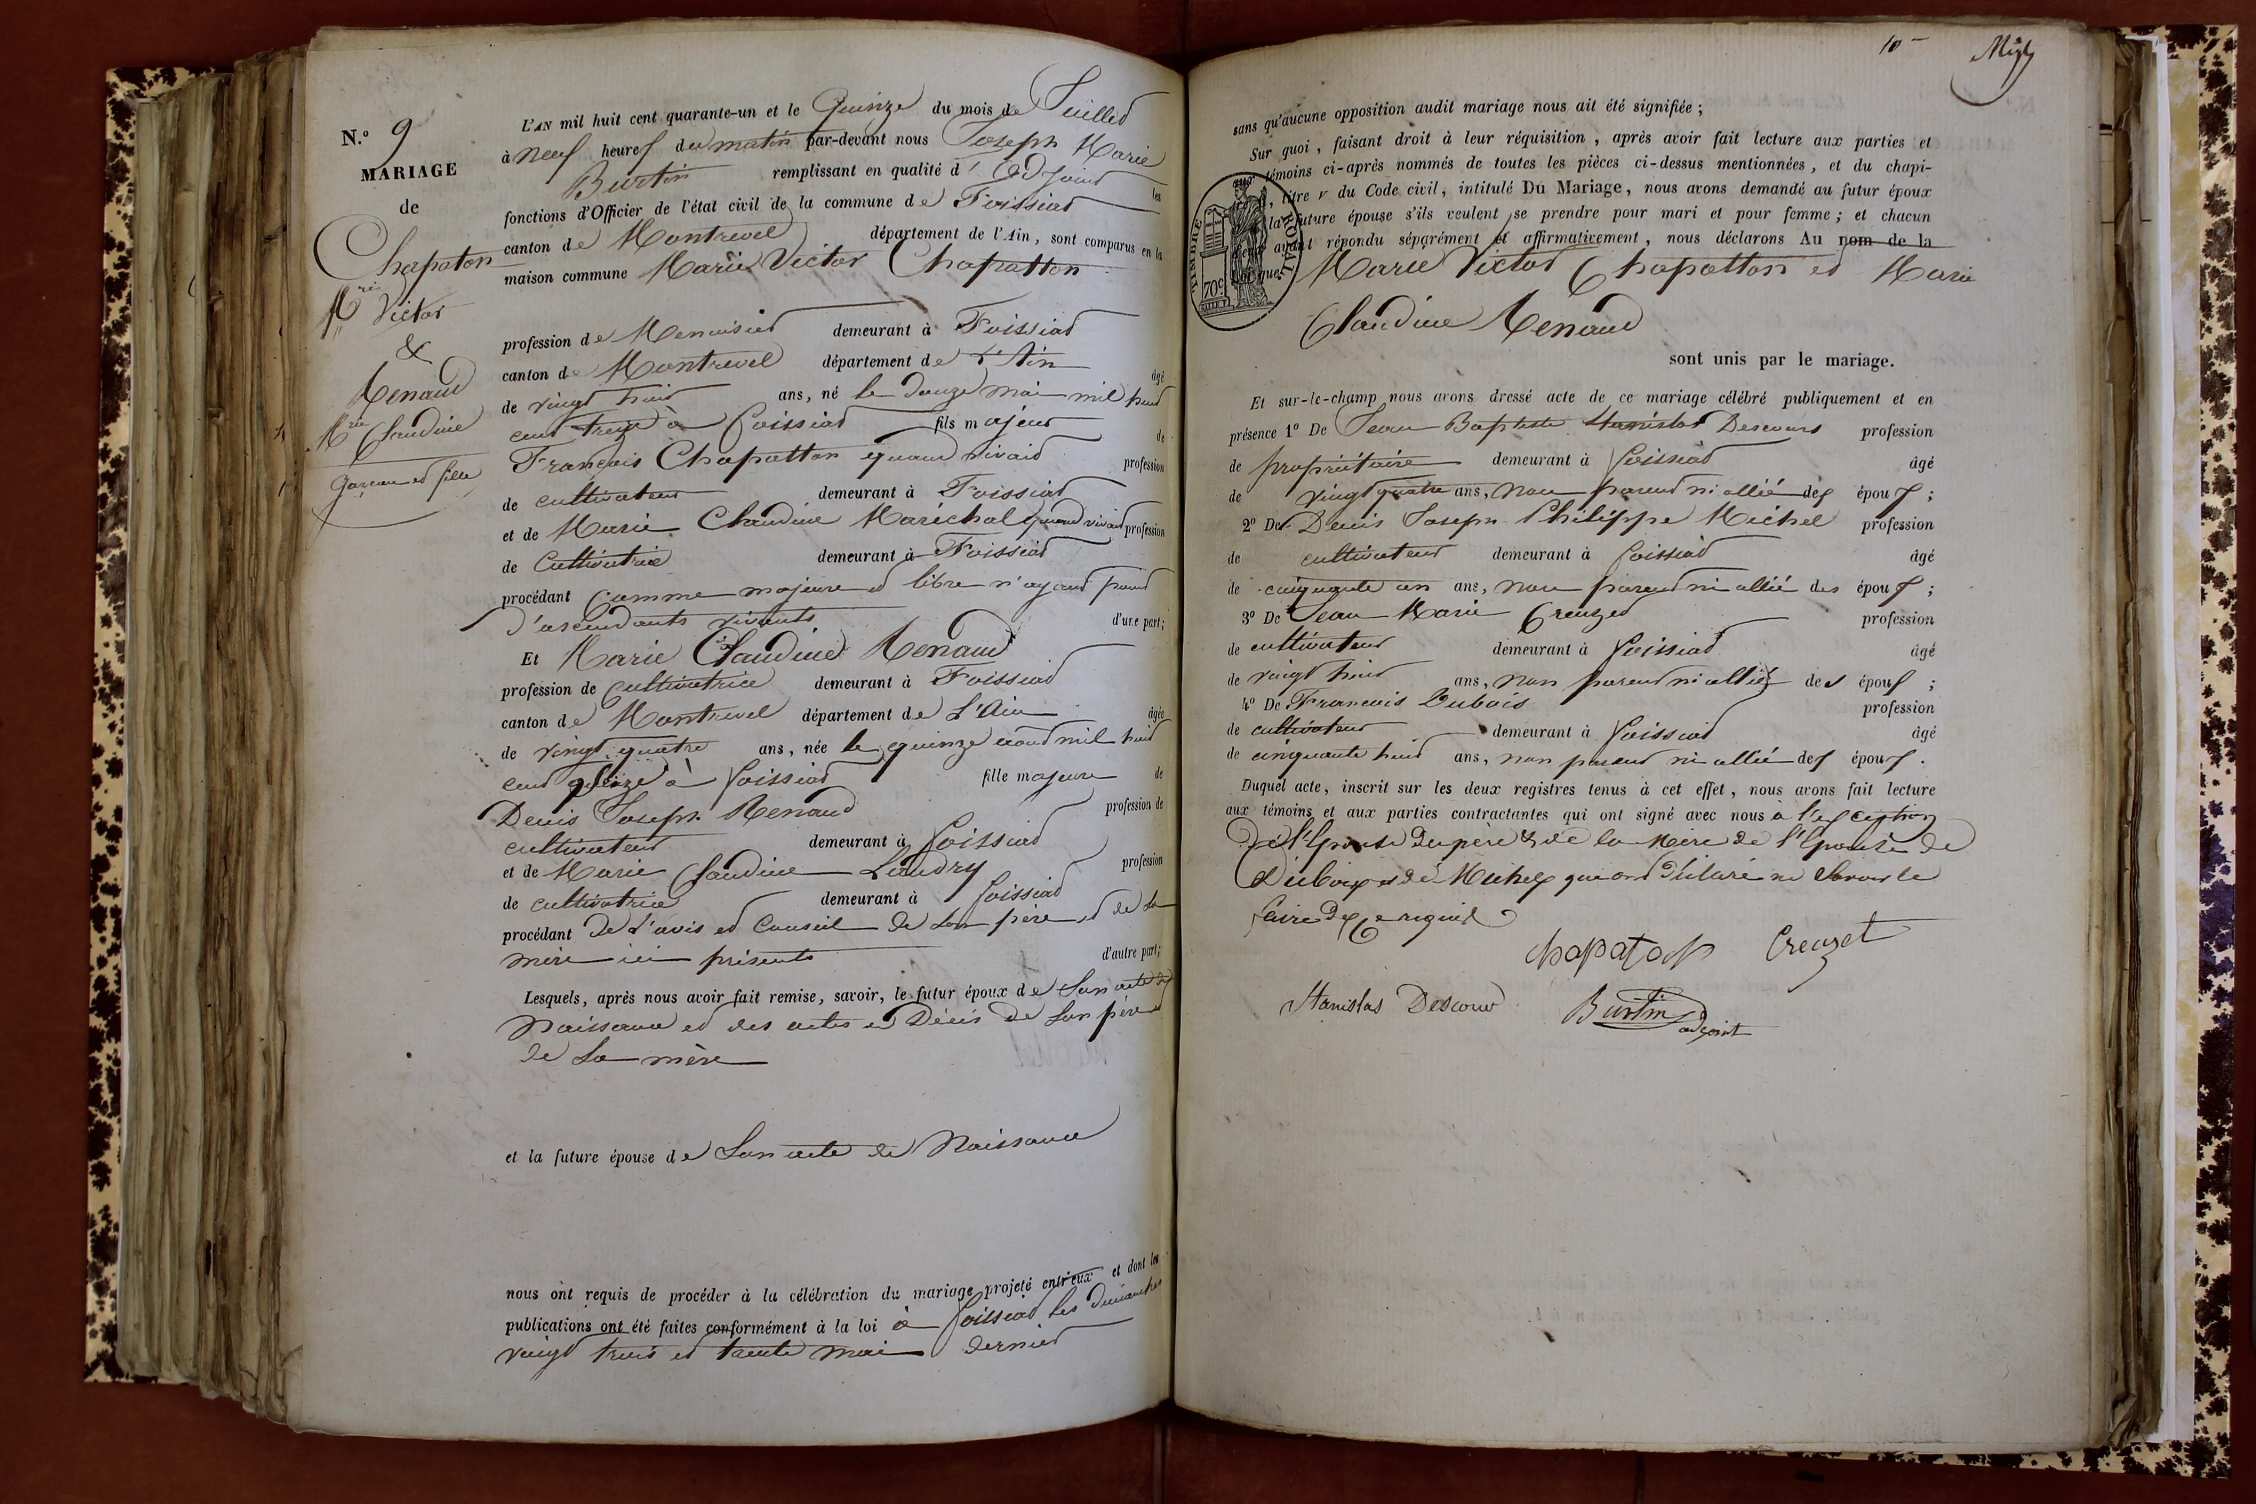 N.º 9
MARIAGE
de
Chapaton
M.rie Victor
&
Renaud
M.rie Claudine
garçon et fille
L'AN mil huit cent quarante-un et le Quinze du mois de Juillet
à neuf heures du matin par-devant nous Joseph Marie
Burtin remplissant en qualité d'adjoint les
fonctions d'Officier de l'état civil de la commune de Foissiat
canton de Montrevel département de l'Ain, sont comparus en la
maison commune Marie Victor Chapatton
profession de Menuisier demeurant à Foissiat
canton de Montrevel département de l'Ain âgé
de vingt huit ans, né le douze mai mil huit
cent treize à foissiat fils majeur de
François Chapatton quand vivait profession
de cultivateur demeurant à Foissiat
et de Marie Claudine Maréchal quand vivait profession
de Cultivatrice demeurant à Foissiat
procédant Comme majeure et libre n'ayant point
d'ascendants vivants d'une part;
Et Marie Claudine Renaud
profession de cultivatrice demeurant à Foissiat
canton de Montrevel département de L'Ain âgée
de vingt quatre ans, née le quinze août mil huit
cent seize à foissiat fille majeure de
Denis Joseph Renaud profession de
cultivateur demeurant à foissiat
et de Marie Claudine Landry profession
de cultivatrice demeurant à foissiat
procédant de l'avis et Conseil de son père et de sa
mère ici présents d'autre part;
Lesquels, après nous avoir fait remise, savoir, le futur époux de Son acte de
Naissance et des actes de Décès de son père et
de sa mère
et la future épouse de Son acte de Naissance
nous ont requis de procéder à la célébration du mariage projeté entr'eux et dont les
publications ont été faites conformément à la loi à foissiat les dimanches
vingt trois et trente mai dernier
10
sans qu'aucune opposition audit mariage nous ait été signifiée;
Sur quoi, faisant droit à leur réquisition, après avoir fait lecture aux parties et
témoins ci-après nommés de toutes les pièces ci-dessus mentionnées, et du chapi-
titre v du Code civil, intitulé Du Mariage, nous avons demandé au futur époux
la future épouse s'ils veulent se prendre pour mari et pour femme; et chacun
ayant répondu séparément et affirmativement, nous déclarons Au nom de la
que Marie Victor Chapatton et Marie
Claudine Renaud
TIMBRE ROYAL
70c
sont unis par le mariage.
Et sur-le-champ nous avons dressé acte de ce mariage célébré publiquement et en
présence 1º De Jean Baptiste Stanislas Descours profession
de propriétaire demeurant à foissiat âgé
de vingt quatre ans, non parent ni allié des époux;
2º De Denis Joseph Philippe Michel profession
de cultivateur demeurant à foissiat âgé
de cinquante un ans, non parent ni allié des époux;
3º De Jean Marie Creuzet profession
de cultivateur demeurant à foissiat âgé
de vingt huit ans, non parent ni allié des époux;
4º De François Dubois profession
de cultivateur demeurant à foissiat âgé
de cinquante huit ans, non parent ni allié des époux.
Duquel acte, inscrit sur les deux registres tenus à cet effet, nous avons fait lecture
aux témoins et aux parties contractantes qui ont signé avec nous à l'exception
De l'Epouse du père & de la Mère de l'Epouse de
Dubois et de Michel qui ont déclaré ne Savoir le
faire de ce requis
chapaton Creuzet
Stanislas Descour Burtin
adjoint